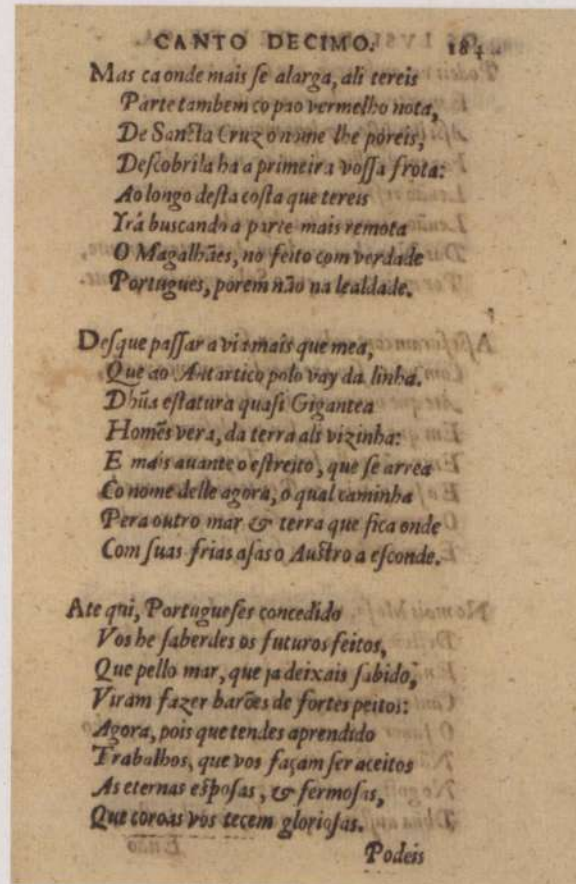 CANTO DECIMO. 184
Mas ca onde mais ſe alarga, ali tereis
Parte tambem co pao vermelho nota,
De Sancta Cruz o nome lhe poreis,
Deſcobrila ha a primeira voſſa frota:
Ao longo deſta coſta que tereis
Yrâ buscando a parte mais remota
O Magalhães, no feito com verdade
Portugues, porem não na lealdade.
Deſque paſſar a via mais que mea,
Que ao Antartico polo vay da linha.
Dhũa eſtatura quaſi Gigantea
Homẽs vera, da terra ali vizinha:
E mais auante o eſtreito, que ſe arrea
Co nome delle agora, o qual caminha
Pera outro mar & terra que fica onde
Com ſuas frias aſas o Auſtro a eſconde.
Ate qui, Portugueſes concedido
Vos he ſaberdes os futuros feitos,
Que pello mar, que ja deixais ſabido,
Viram fazer barões de fortes peitos:
Agora, pois que tendes aprendido
Trabalhos, que vos façam ſer aceitos
As eternas eſpoſas, & fermoſas,
Que coroas vos tecem glorioſas.
Podeis